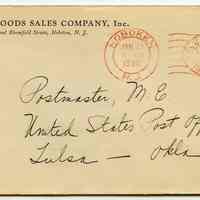 OODS SALES COMPANY, Inc.
Bloomfield Street, Hoboken, N. J.
HOBOKEN
JAN
N.J.
Postmaster, M. E.
United States Post Off
Tulsa — Okla